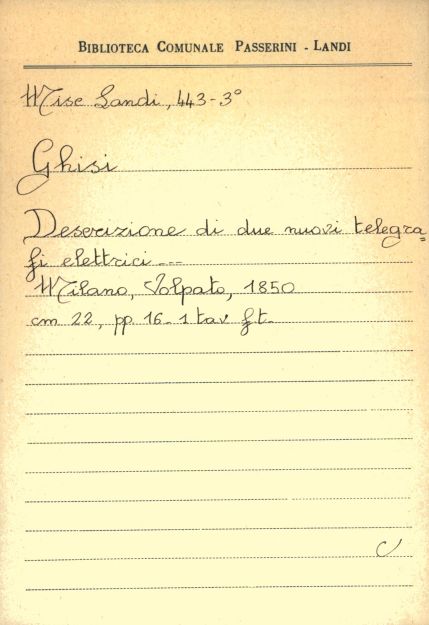 BIBLIOTECA COMUNALE PASSERINI - LANDI
Misc Landi, 443-3°
Ghisi
Descrizione di due nuovi telegra=
fi elettrici ---
Milano, Volpato, 1850
cm 22, pp. 16- 1 tav f.t.